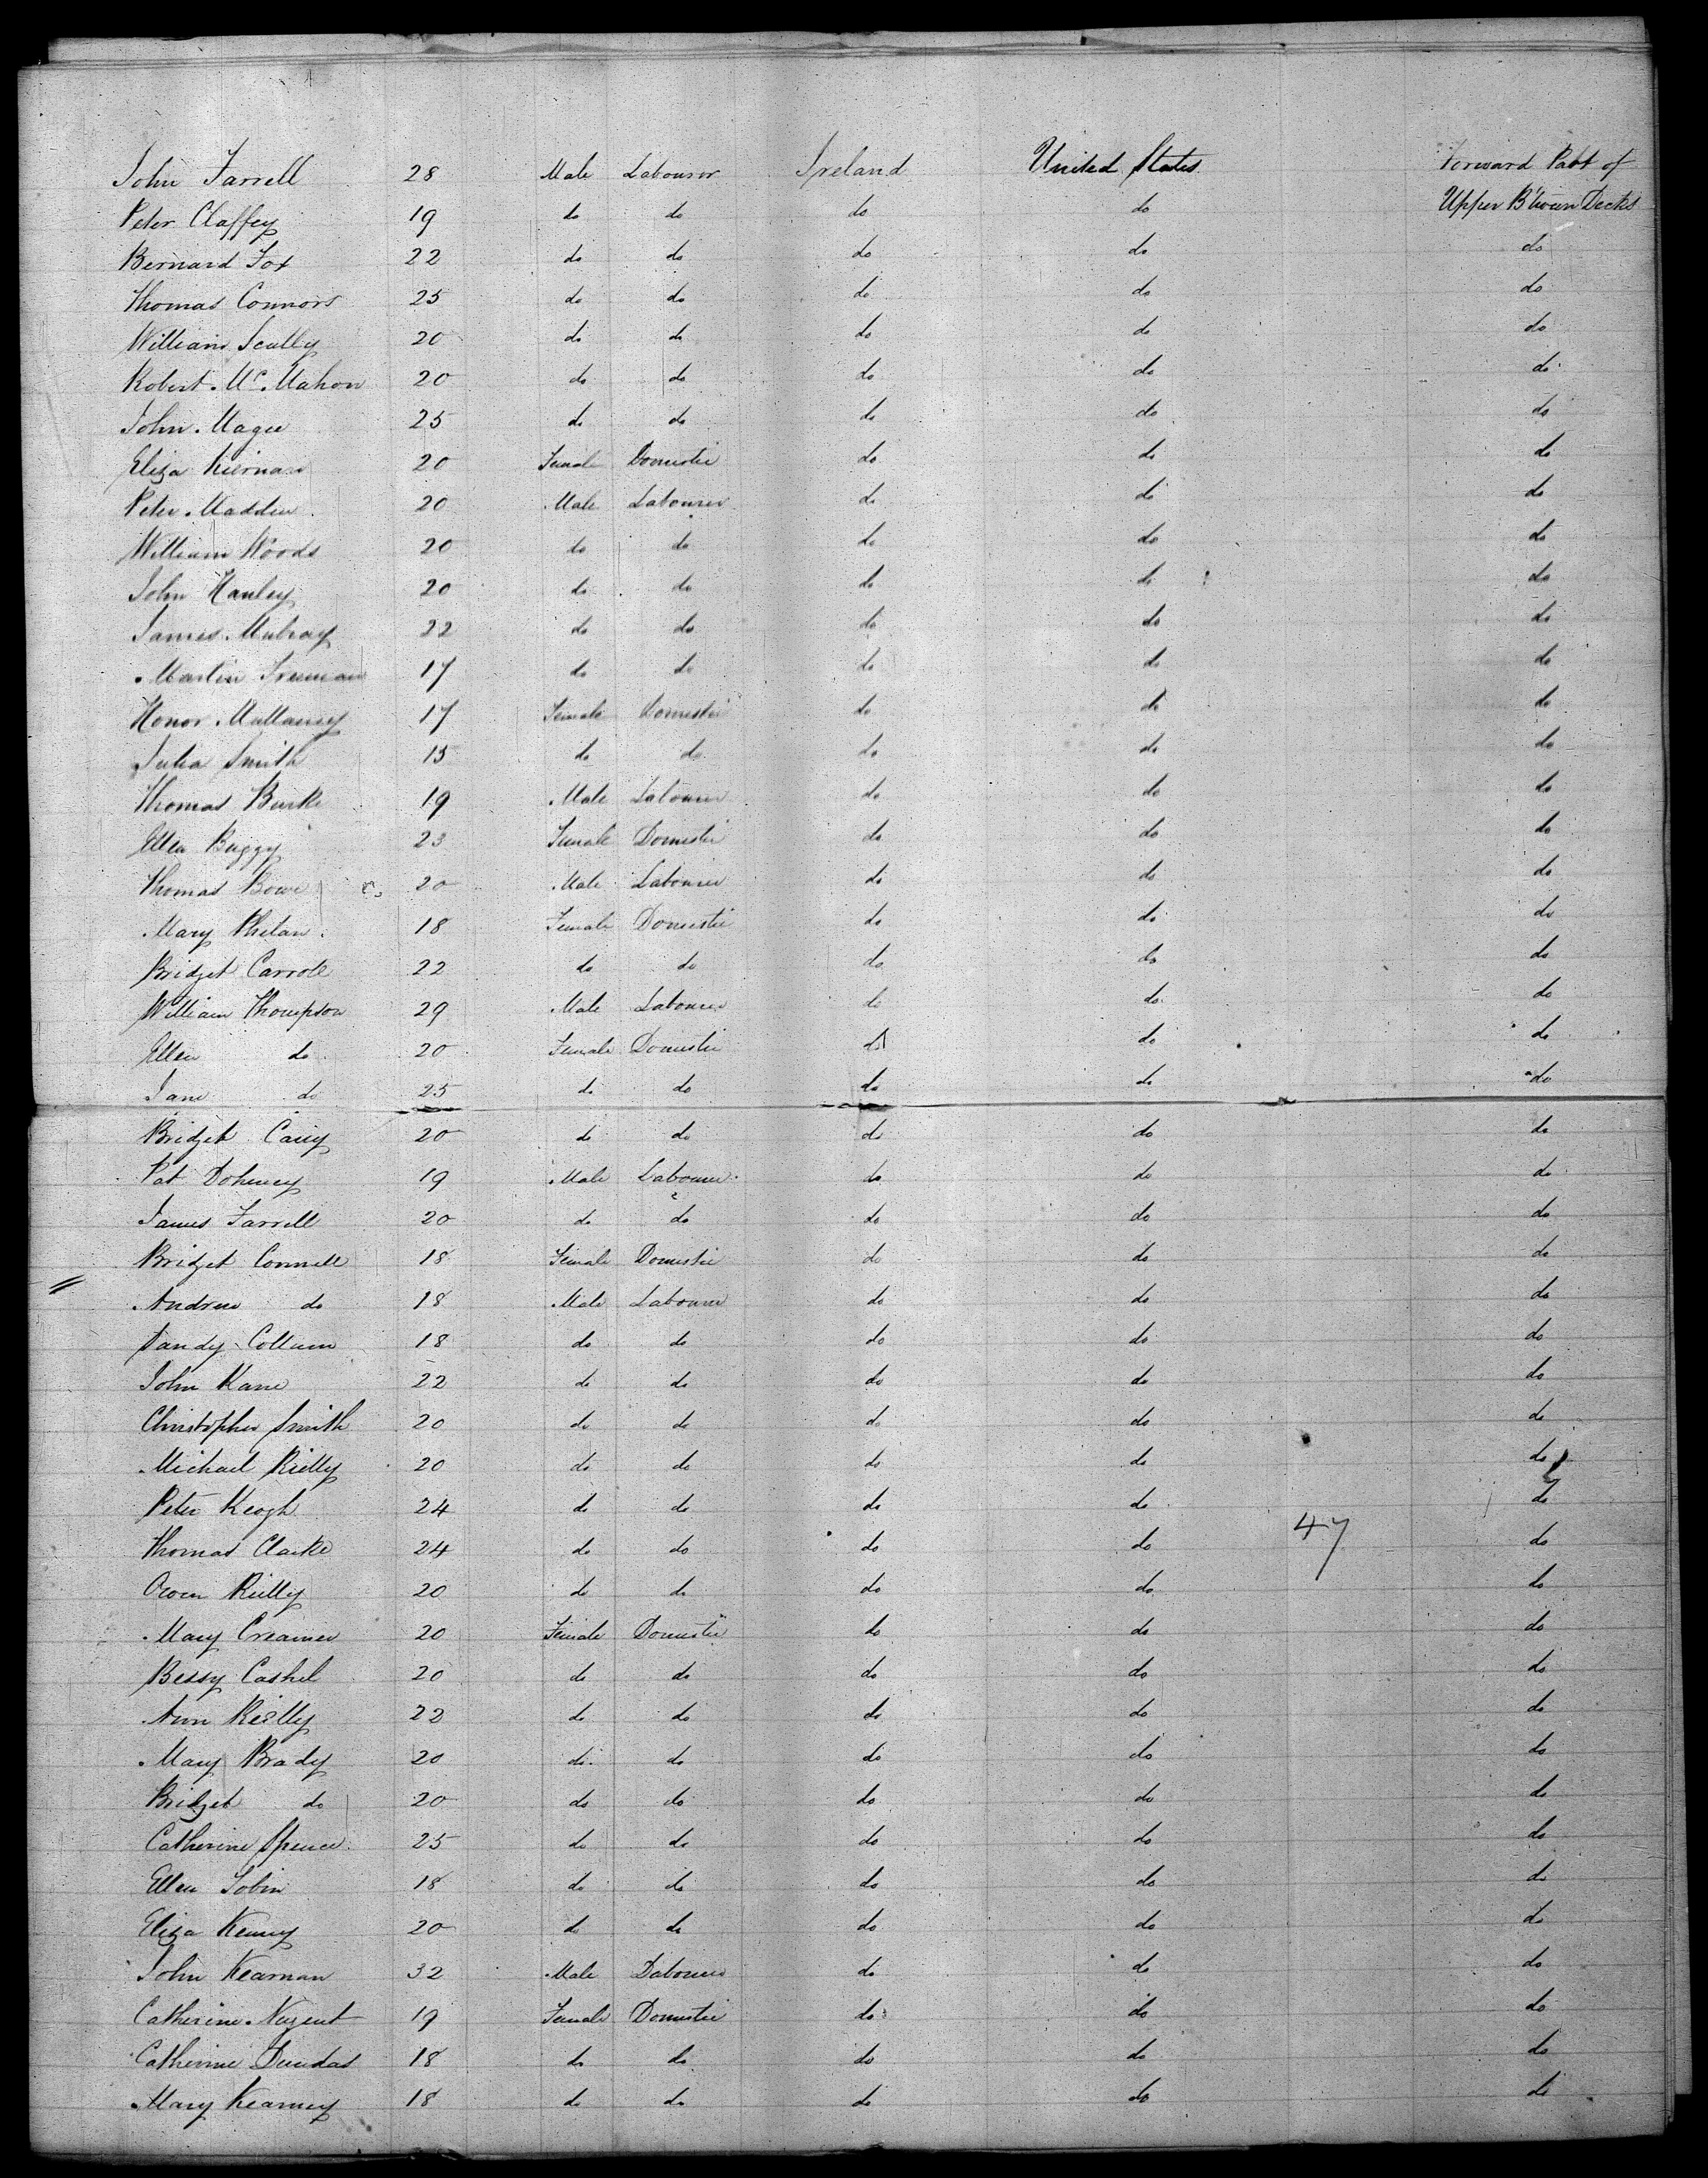 John Farrell 28 Male Labourer Ireland United States Forward Part of
Peter Claffey 19 do do do do Upper B'tween Decks
Bernard Fox 22 do do do do do
Thomas Connors 25 do do do do do
William Scully 20 do do do do do
Robert McMahon 20 do do do do do
John Magee 25 do do do do do
Eliza Kiernan 20 Female Domestic do do do
Peter Madden 20 Male Labourer do do do
William Woods 20 do do do do do
John Hanley 20 do do do do do
James Mulray 22 do do do do do
Martin Freeman 17 do do do do do
Honor Mullaney 17 Female Domestic do do do
Julia Smith 15 do do do do do
Thomas Burke 19 Male Labourer do do do
Ellen Buggy 23 Female Domestic do do do
Thomas Bowe 20 Male Labourer do do do
Mary Phelan 18 Female Domestic do do do
Bridget Carroll 22 do do do do do
William Thompson 29 Male Labourer do do do
Ellen do 20 Female Domestic do do do
Jane do 25 do do do do do
Bridget Casey 20 do do do do do
Pat Doheney 19 Male Labourer do do do
James Farrell 20 do do do do do
Bridget Connell 18 Female Domestic do do do
Andrew do 18 Male Labourer do do do
Sandy Collum 18 do do do do do
John Kane 22 do do do do do
Christopher Smith 20 do do do do do
Michael Rielly 20 do do do do do
Peter Keogh 24 do do do do do
Thomas Clarke 24 do do do do 47 do
Owen Rielly 20 do do do do do
Mary Creamer 20 Female Domestic do do do
Bessy Cashel 20 do do do do do
Ann Rielly 22 do do do do do
Mary Brady 20 do do do do do
Bridget do 20 do do do do do
Catherine Spence 25 do do do do do
Ellen Tobin 18 do do do do do
Eliza Kenny 20 do do do do do
John Kearnan 32 Male Labourer do do do
Catherine Nugent 19 Female Domestic do do do
Catherine Dundas 18 do do do do do
Mary Kearney 18 do do do do do